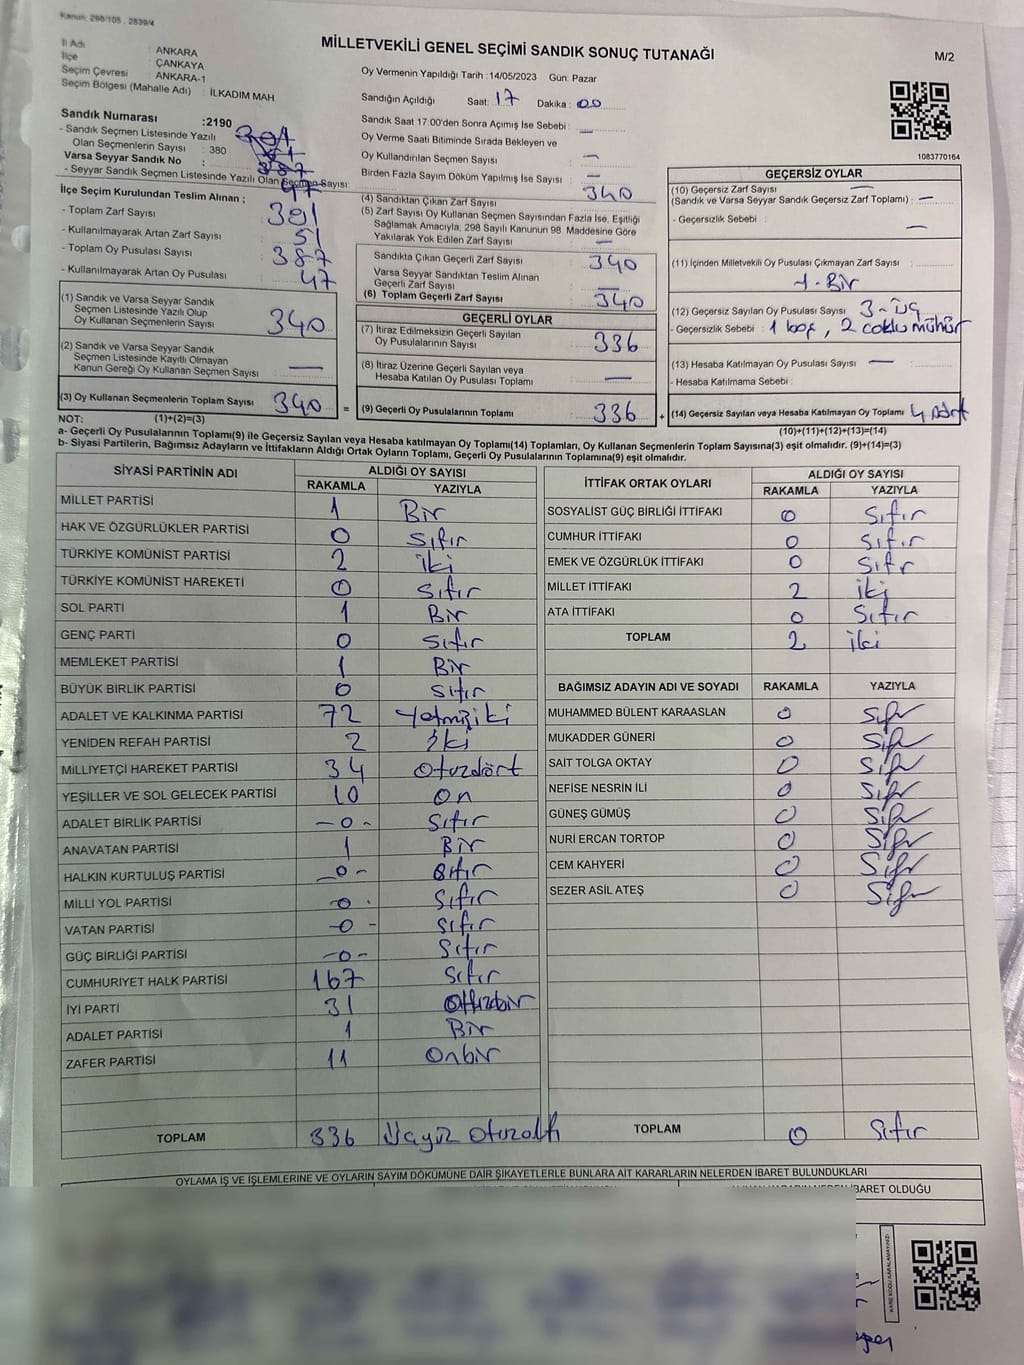 Kanun: 298/105 , 2839/4
MİLLETVEKİLİ GENEL SEÇİMİ SANDIK SONUÇ TUTANAĞI
M/2
İl Adı : ANKARA
İlçe : ÇANKAYA
Seçim Çevresi : ANKARA-1
Seçim Bölgesi (Mahalle Adı) : İLKADIM MAH
Sandık Numarası :2190
- Sandık Seçmen Listesinde Yazılı
Olan Seçmenlerin Sayısı : 380
Varsa Seyyar Sandık No :
- Seyyar Sandık Seçmen Listesinde Yazılı Olan Seçmen Sayısı:
İlçe Seçim Kurulundan Teslim Alınan ;
- Toplam Zarf Sayısı : 391
- Kullanılmayarak Artan Zarf Sayısı : 51
- Toplam Oy Pusulası Sayısı : 387
- Kullanılmayarak Artan Oy Pusulası : 47
(1) Sandık ve Varsa Seyyar Sandık
Seçmen Listesinde Yazılı Olup
Oy Kullanan Seçmenlerin Sayısı : 340
(2) Sandık ve Varsa Seyyar Sandık
Seçmen Listesinde Kayıtlı Olmayan
Kanun Gereği Oy Kullanan Seçmen Sayısı : —
(3) Oy Kullanan Seçmenlerin Toplam Sayısı : 340 =
Oy Vermenin Yapıldığı Tarih :14/05/2023 Gün: Pazar
Sandığın Açıldığı Saat: 17 Dakika : 00
Sandık Saat 17:00'den Sonra Açımış İse Sebebi : —
Oy Verme Saati Bitiminde Sırada Bekleyen ve
Oy Kullandırılan Seçmen Sayısı : —
Birden Fazla Sayım Döküm Yapılmış İse Sayısı : —
(4) Sandıktan Çıkan Zarf Sayısı : 340
(5) Zarf Sayısı Oy Kullanan Seçmen Sayısından Fazla İse, Eşitliği
Sağlamak Amacıyla, 298 Sayılı Kanunun 98. Maddesine Göre
Yakılarak Yok Edilen Zarf Sayısı : —
Sandıkta Çıkan Geçerli Zarf Sayısı : 340
Varsa Seyyar Sandıktan Teslim Alınan
Geçerli Zarf Sayısı : —
(6) Toplam Geçerli Zarf Sayısı : 340
GEÇERLİ OYLAR
(7) İtiraz Edilmeksizin Geçerli Sayılan
Oy Pusulalarının Sayısı : 336
(8) İtiraz Üzerine Geçerli Sayılan veya
Hesaba Katılan Oy Pusulası Toplamı : —
(9) Geçerli Oy Pusulalarının Toplamı : 336 +
1083770164
GEÇERSİZ OYLAR
(10) Geçersiz Zarf Sayısı
(Sandık ve Varsa Seyyar Sandık Geçersiz Zarf Toplamı) : —
- Geçersizlik Sebebi : —
(11) İçinden Milletvekili Oy Pusulası Çıkmayan Zarf Sayısı :
1-Bir
(12) Geçersiz Sayılan Oy Pusulası Sayısı : 3-üç
- Geçersizlik Sebebi : 1 boş, 2 coklu mühür
(13) Hesaba Katılmayan Oy Pusulası Sayısı : —
- Hesaba Katılmama Sebebi :
(14) Geçersiz Sayılan veya Hesaba Katılmayan Oy Toplamı : 4 dört
NOT: (1)+(2)=(3)
(10)+(11)+(12)+(13)=(14)
a- Geçerli Oy Pusulalarının Toplamı(9) ile Geçersiz Sayılan veya Hesaba katılmayan Oy Toplamı(14) Toplamları, Oy Kullanan Seçmenlerin Toplam Sayısına(3) eşit olmalıdır. (9)+(14)=(3)
b- Siyasi Partilerin, Bağımsız Adayların ve İttifakların Aldığı Ortak Oyların Toplamı, Geçerli Oy Pusulalarının Toplamına(9) eşit olmalıdır.
SİYASİ PARTİNİN ADI ALDIĞI OY SAYISI
RAKAMLA YAZIYLA
MİLLET PARTİSİ 1 Bir
HAK VE ÖZGÜRLÜKLER PARTİSİ 0 Sıfır
TÜRKİYE KOMÜNİST PARTİSİ 2 iki
TÜRKİYE KOMÜNİST HAREKETİ 0 Sıfır
SOL PARTİ 1 Bir
GENÇ PARTİ 0 Sıfır
MEMLEKET PARTİSİ 1 Bir
BÜYÜK BİRLİK PARTİSİ 0 Sıfır
ADALET VE KALKINMA PARTİSİ 72 Yetmişiki
YENİDEN REFAH PARTİSİ 2 iki
MİLLİYETÇİ HAREKET PARTİSİ 34 Otuzdört
YEŞİLLER VE SOL GELECEK PARTİSİ 10 On
ADALET BİRLİK PARTİSİ -0- Sıfır
ANAVATAN PARTİSİ 1 Bir
HALKIN KURTULUŞ PARTİSİ -0- Sıfır
MİLLİ YOL PARTİSİ -0- Sıfır
VATAN PARTİSİ -0- Sıfır
GÜÇ BİRLİĞİ PARTİSİ -0- Sıfır
CUMHURİYET HALK PARTİSİ 167 Sıfır
İYİ PARTİ 31 Otuzbir
ADALET PARTİSİ 1 Bir
ZAFER PARTİSİ 11 Onbir
TOPLAM 336 üçyüz otuzaltı
İTTİFAK ORTAK OYLARI ALDIĞI OY SAYISI
RAKAMLA YAZIYLA
SOSYALİST GÜÇ BİRLİĞİ İTTİFAKI 0 Sıfır
CUMHUR İTTİFAKI 0 Sıfır
EMEK VE ÖZGÜRLÜK İTTİFAKI 0 Sıfır
MİLLET İTTİFAKI 2 iki
ATA İTTİFAKI 0 Sıfır
TOPLAM 2 iki
BAĞIMSIZ ADAYIN ADI VE SOYADI RAKAMLA YAZIYLA
MUHAMMED BÜLENT KARAASLAN 0 Sıfır
MUKADDER GÜNERİ 0 Sıfır
SAİT TOLGA OKTAY 0 Sıfır
NEFİSE NESRİN İLİ 0 Sıfır
GÜNEŞ GÜMÜŞ 0 Sıfır
NURİ ERCAN TORTOP 0 Sıfır
CEM KAHYERİ 0 Sıfır
SEZER ASİL ATEŞ 0 Sıfır
TOPLAM 0 Sıfır
OYLAMA İŞ VE İŞLEMLERİNE VE OYLARIN SAYIM DÖKÜMÜNE DAİR ŞİKAYETLERLE BUNLARA AİT KARARLARIN NELERDEN İBARET BULUNDUKLARI
İBARET OLDUĞU
KARE KODU KARALAMAYINIZ